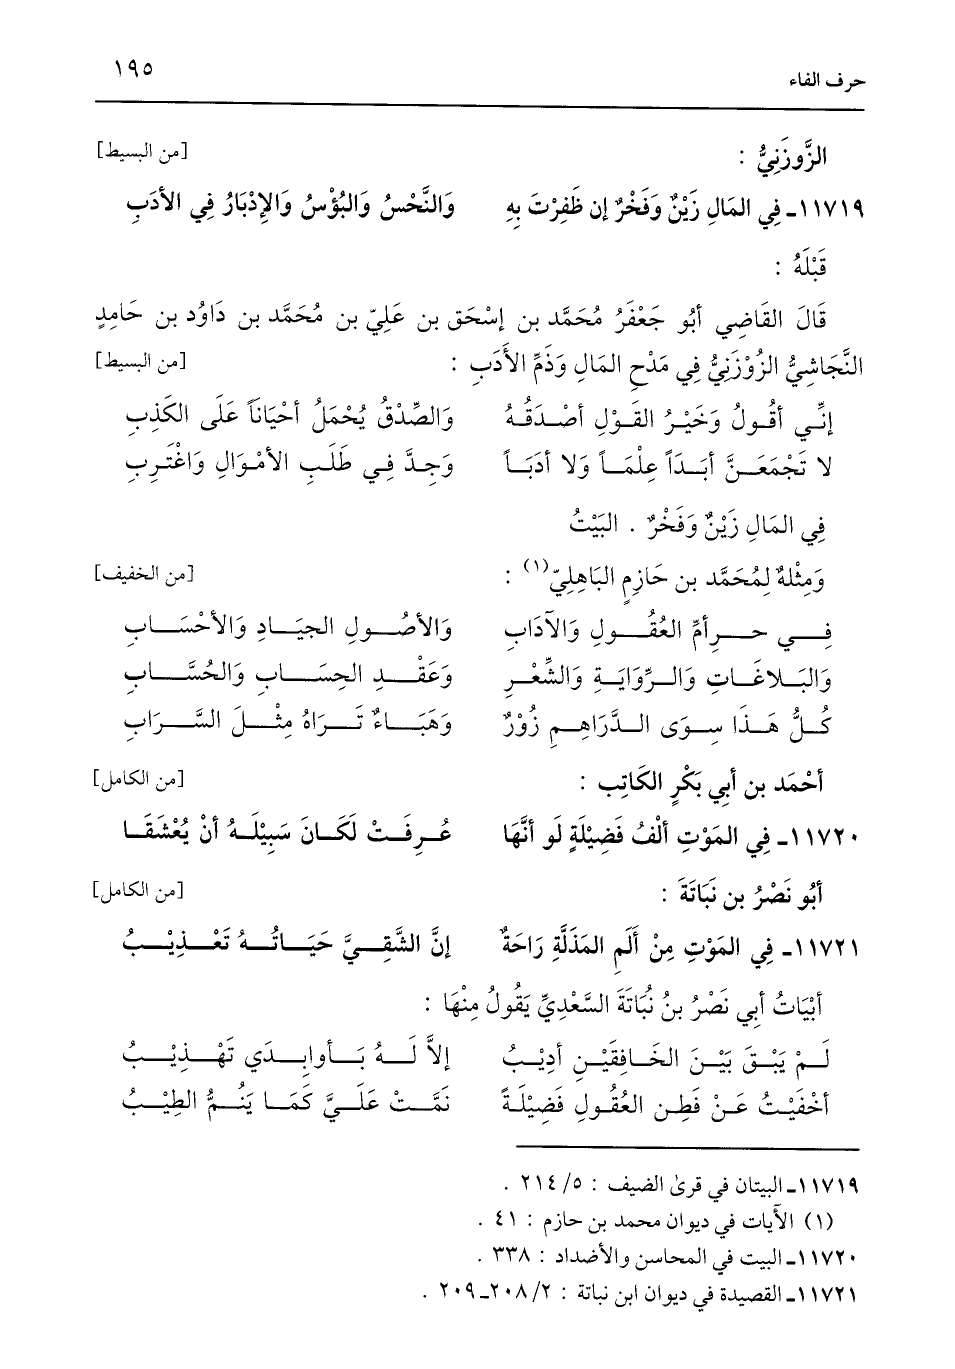 حرف الفاء ١٩٥
الزَّوزَنِيُّ : [من البسيط]
١١٧١٩ـ فِي المَالِ زَيْنٌ وَفَخْرٌ إن ظَفِرْتَ بِهِ وَالنَّحْسُ وَالبُؤْسُ وَالإِدْبَارُ فِي الأدَبِ
قَبْلَهُ :
قَالَ القَاضِي أبُو جَعْفَرُ مُحَمَّد بن إسْحَق بن عَلِيّ بن مُحَمَّد بن دَاوُد بن حَامِدٍ
النَّجَاشِيُّ الزُوْزَنِيُّ فِي مَدْحِ المَالِ وَذَمِّ الأَدَبِ : [من البسيط]
إنِّي أقُولُ وَخَيْرُ القَوْلِ أصْدَقُهُ وَالصِّدْقُ يُحْمَلُ أحْيَاناً عَلَى الكَذِبِ
لا تَجْمَعَنَّ أبَدَاً عِلْمَاً وَلا أدَبَاً وَجِدَّ فِي طَلَبِ الأمْوَالِ وَاغْتَرِبِ
فِي المَالِ زَيْنٌ وَفَخْرٌ . البَيْتُ
وَمِثْلهُ لِمُحَمَّد بن حَازِمِ البَاهِلِيّ(١) : [من الخفيف]
فِي حرأمِّ العُقُولِ وَالآدَابِ وَالأصُولِ الجيَادِ وَالأحْسَابِ
وَالبَلاغَاتِ وَالرِّوَايَةِ وَالشِّعْرِ وَعَقْدِ الحِسَابِ وَالحُسَّابِ
كُلُّ هَذَا سِوَى الدَّرَاهِمِ زُوْرٌ وَهَبَاءٌ تَرَاهُ مِثْلَ السَّرَابِ
أحْمَد بن أبي بَكْرٍ الكَاتِب : [من الكامل]
١١٧٢٠ـ فِي المَوْتِ ألْفُ فَضِيْلَةٍ لَو أنَّهَا عُرِفَتْ لَكَانَ سَبِيْلَهُ أنْ يُعْشَقَا
أبُو نَصْرُ بن نَبَاتَةَ : [من الكامل]
١١٧٢١ـ فِي المَوْتِ مِنْ أَلَمِ المَذَلَّةِ رَاحَةٌ إنَّ الشَّقِيَّ حَيَاتُهُ تَعْذِيْبُ
أبْيَاتُ أبِي نَصْرُ بنُ نُبَاتَةَ السَّعْدِيِّ يَقُولُ مِنْهَا :
لَمْ يَبْقَ بَيْنَ الخَافِقَيْنِ أدِيْبُ إلاَّ لَهُ بَأوابِدِي تَهْذِيْبُ
أخْفَيْتُ عَنْ فَطِنِ العُقُولِ فَضِيْلَةً نَمَّتْ عَلَيَّ كَمَا يَنُمُّ الطِيْبُ
١١٧١٩ـ البيتان في قرىٰ الضيف : ٥/ ٢١٤ .
(١) الأبيات في ديوان محمد بن حازم : ٤١ .
١١٧٢٠ـ البيت في المحاسن والأضداد : ٣٣٨ .
١١٧٢١ـ القصيدة في ديوان ابن نباتة : ٢/ ٢٠٨ـ٢٠٩ .